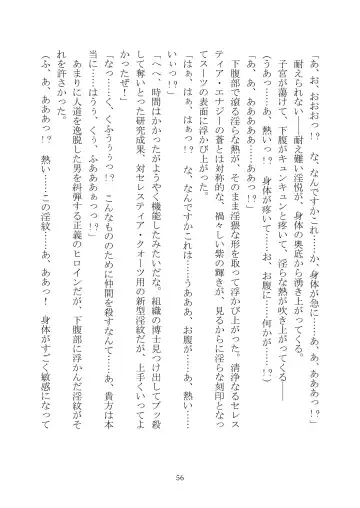 「あ、お、おおおっ！？　な、なんですかこれ……か、身体が急に……あ、あ、あああっ！？」
　耐えられない――耐え難い淫悦が、身体の奥底から湧き上がってくる。
　子宮が蕩けて、下腹がキュンキュンと疼いて、淫らな熱が吹き上がってくる――
（うあっ……あ、熱いっ！？　身体が疼いて……お、お腹に……何かが……！？）
「あ、あ、ああああ……ああっ！？」
　下腹部で滾る淫らな熱が、そのまま淫猥な形を取って浮かび上がる。清浄なるセレス
ティア・エナジーの蒼とは対称的な、禍々しい紫の輝きが、見るからに淫らな刻印となっ
てスーツの表面に浮かび上がった。
「はぁ、はぁ、はぁっ！？　な、なんですかこれは……うああ、お腹が……あ、熱い……
っ！？」
「へへ、時間はかかったがようやく機能したみたいだな。組織の博士見つけ出してブッ殺
して奪いとった研究成果、対セレスティア・クォーツ用の新型淫紋だが、上手くいってよ
かったぜ！」
「なっ……く、くふううぅっ！？　こんなもののために仲間を殺すなんて……あ、貴方は本
当に……はうぅ、くぅ、ふあああぁっっ！？」
　あまりに人道を逸脱した男を糾弾する正義のヒロインだが、下腹部に浮かんだ淫紋がそ
れを許さなかった。
（ふ、あ、あああっ！　熱い……この淫紋……あ、ああっ！　身体がすごく敏感になって
56